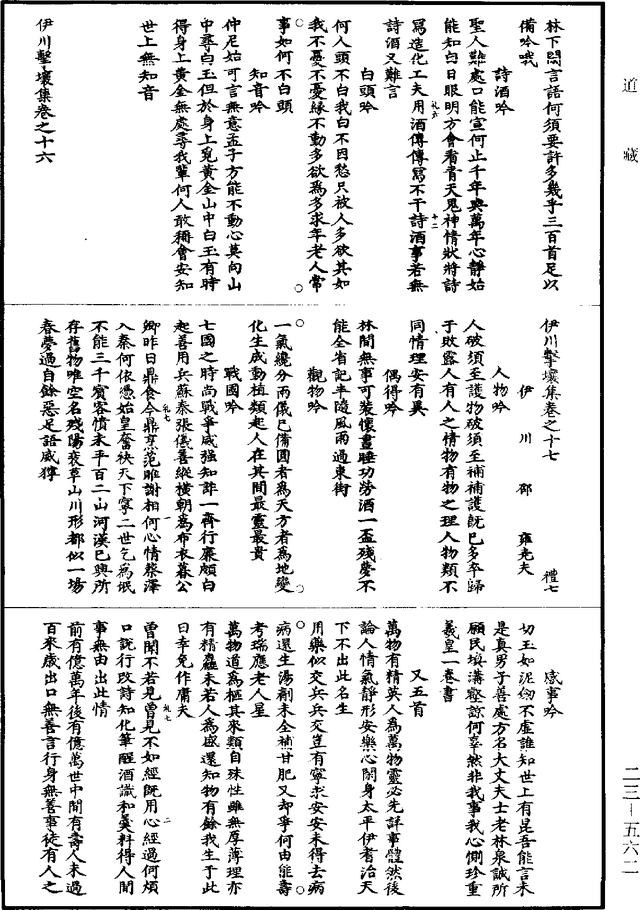 道藏
林下閑言語何須要許多幾乎三百首足以
備吟哦
詩酒吟
聖人難處口能宣何止千年與萬年心靜始
能知白日眼明方會看青天鬼神情狀將詩
寫造化工夫用酒傳傳寫不干詩酒事若無
詩酒又難言
白頭吟
何人頭不白我白不因愁只被人多欲其如
我不憂不憂緣不動多欲為多求年老人常
事如何不白頭
知音吟
仲尼始可言無意孟子方能不動心莫向山
中尋白玉但於身上覓黃金山中白玉有時
得身上黃金無處尋我輩何人敢稱會安知
世上無知音
伊川擊壤集卷之十六
伊川擊壤集卷之十七 禮七
伊川邵雍堯夫
人物吟
人破須至護物破須至補補護既已多卒歸
于敗露人有人之情物有物之理人物類不
同情理安有異
偶得吟
林間無事可裝懷晝睡功勞酒一盃殘夢不
能全省記半隨風雨過東街
觀物吟
一氣纔分兩儀已備圓者為天方者為地變
化生成動植類起人在其間最靈最貴
戰國吟
七國之時尚戰爭威强知詐一齊行廉頗白
起善用兵蘇秦張儀善縱橫朝為布衣暮公
卿昨日鼎食今鼎烹范睢謝相何心情蔡澤
入秦何依憑始皇奮袂天下寧二世乞為氓
不能三千賓客憤未平百二山河漢已興所
存舊物唯空名殘陽衰草山川形都似一場
春夢過自餘惡足語威獰
感事吟
切玉如泥劒不虛誰知世上有昆吾能言未
是真男子善處方名大丈夫士老林泉誠所
願民填溝壑諒何辜然非我事我心惻珍重
羲皇一卷書
又五首
萬物有精英人為萬物靈必先詳事體然後
論人情氣靜形安樂心閑身太平伊耆治天
下不出此名生
用藥似交兵兵交豈有寧求安安未得去病
病還生湯劑未全補甘肥又却爭何由能壽
考瑞應老人星
萬物道為樞其來類自殊性雖無厚薄理亦
有精麤未若人為盛還知物有餘我生于此
日幸免作庸夫
曾聞不若見曾見不如經既用心經過何煩
口說行改詩知化筆醒酒識和羮料得人間
事無由出此情
前有億萬年後有億萬世中間有壽人未過
百來歲出口無善言行身無善事徒有人之
二三—五六二